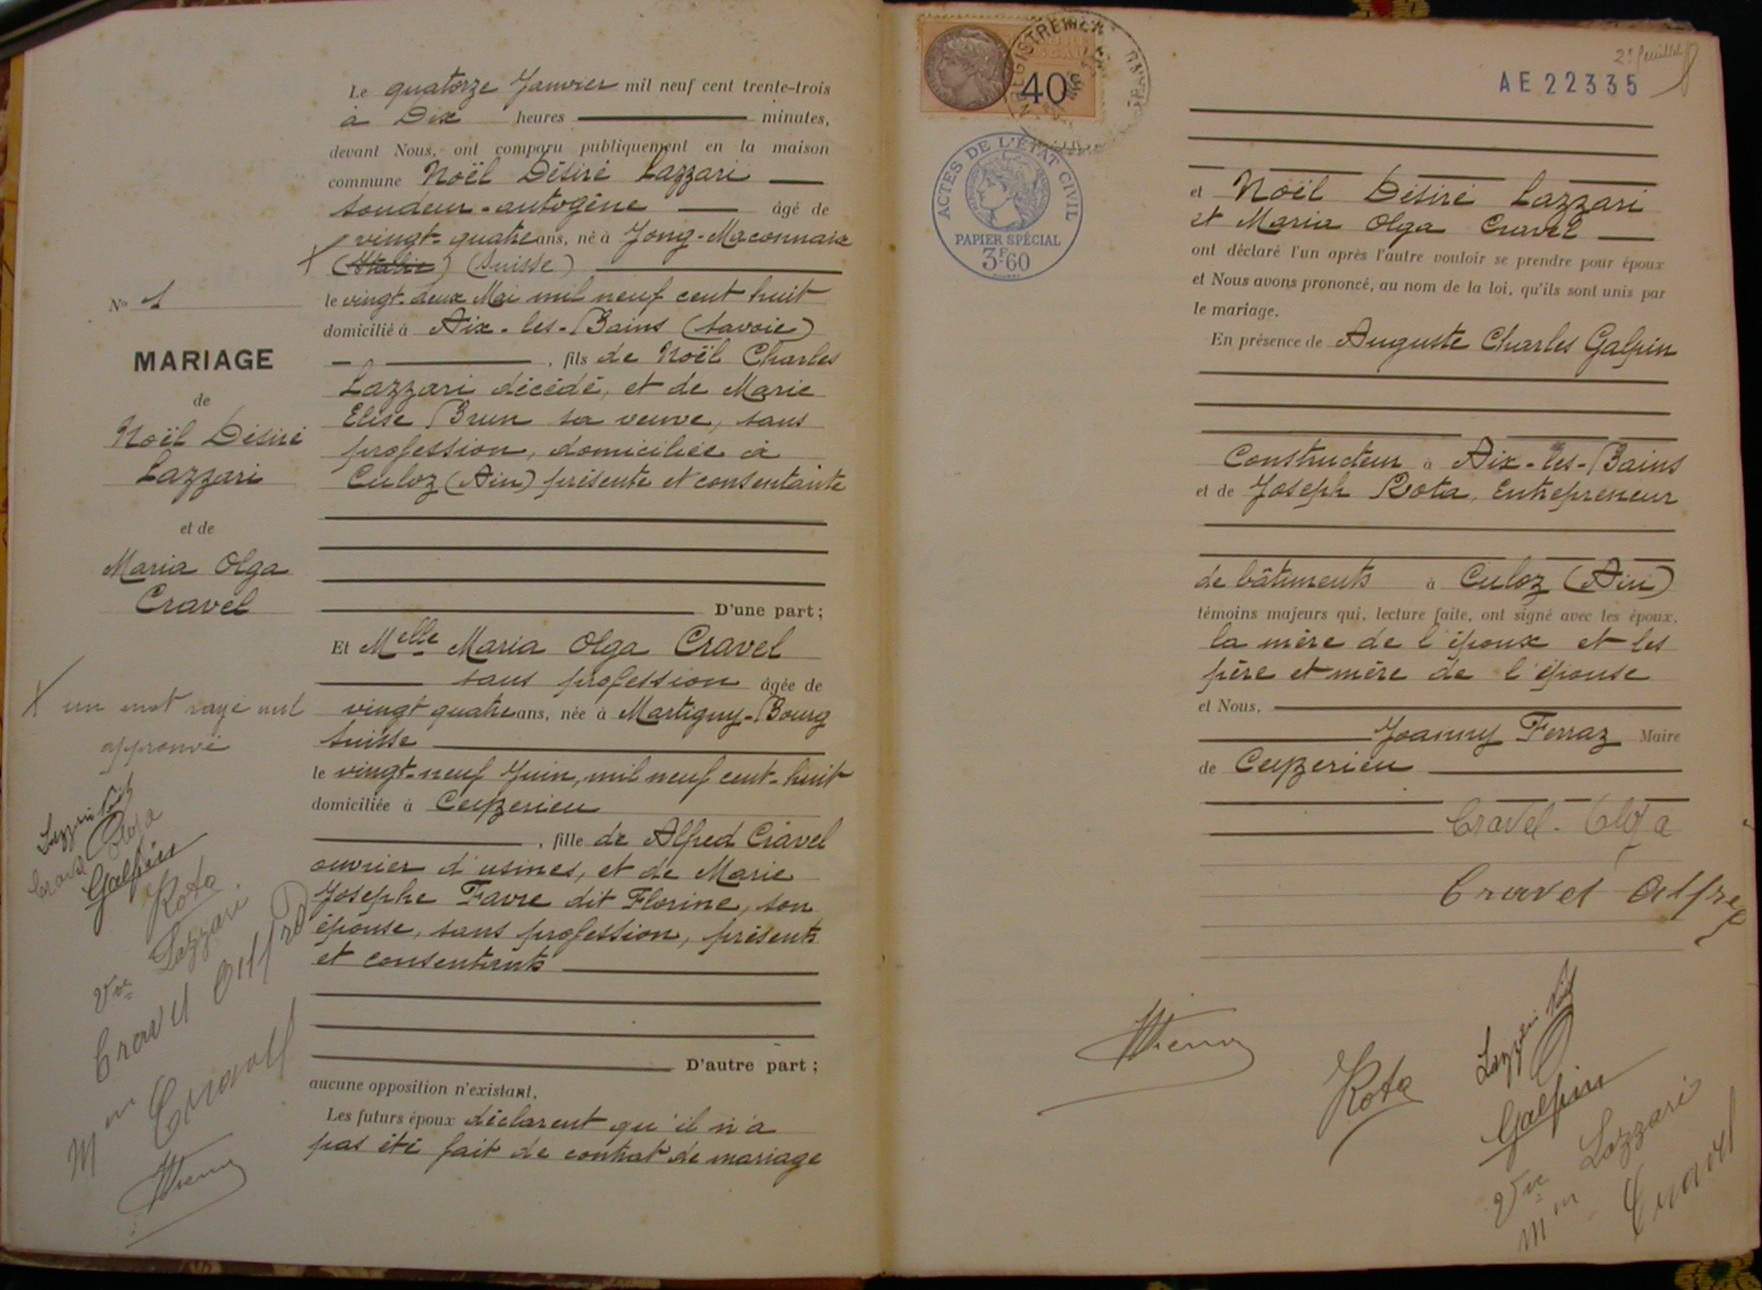 Le quatorze Janvier mil neuf cent trente-trois
à Dix heures minutes,
devant Nous, ont comparu publiquement en la maison
commune Noël Désiré Lazzari
soudeur-autogène âgé de
vingt-quatre ans, né à Jong-Maconnaix
(Suisse)
le vingt-deux Mai mil neuf cent huit
domicilié à Aix-les-Bains (Savoie)
, fils de Noël Charles
Lazzari décédé, et de Marie
Elise Brun sa veuve, sans
profession, domiciliée à
Culoz (Ain) présente et consentante
D'une part;
Et Melle Maria Olga Cravel
sans profession âgée de
vingt quatre ans, née à Martigny-Bourg
Suisse
le vingt-neuf Juin, mil neuf cent-huit
domiciliée à Ceyzerieu
, fille de Alfred Cravel
ouvrier d'usines, et de Marie
Josephe Favre dit Florine, son
épouse, sans profession, présents
et consentants
D'autre part;
aucune opposition n'existant.
Les futurs époux déclarent qu'il n'a
pas été fait de contrat de mariage
No 1
MARIAGE
de
Noël Désiré
Lazzari
et de
Maria Olga
Cravel
X un mot rayé nul
approuvé
Lazzari Noël
Cravel Olga
Galpin
Rota
Vve Lazzari
Cravel Alfred
Mme Cravel
2e feuillet
AE 22335
ENREGISTREMENT
40
ACTES DE L'ÉTAT CIVIL
PAPIER SPÉCIAL
3F60
et Noël Désiré Lazzari
et Maria Olga Cravel
ont déclaré l'un après l'autre vouloir se prendre pour époux
et Nous avons prononcé, au nom de la loi, qu'ils sont unis par
le mariage.
En présence de Auguste Charles Galpin
Constructeur à Aix-les-Bains
et de Joseph Rota, Entrepreneur
de bâtiments à Culoz (Ain)
témoins majeurs qui, lecture faite, ont signé avec les époux,
la mère de l'époux et les
père et mère de l'épouse
et Nous,
Joanny Ferraz Maire
de Ceyzerieu
Cravel-Olga
Cravel Alfred
Rota
Lazzari Noël
Galpin
Vve Lazzari
Mme Cravel